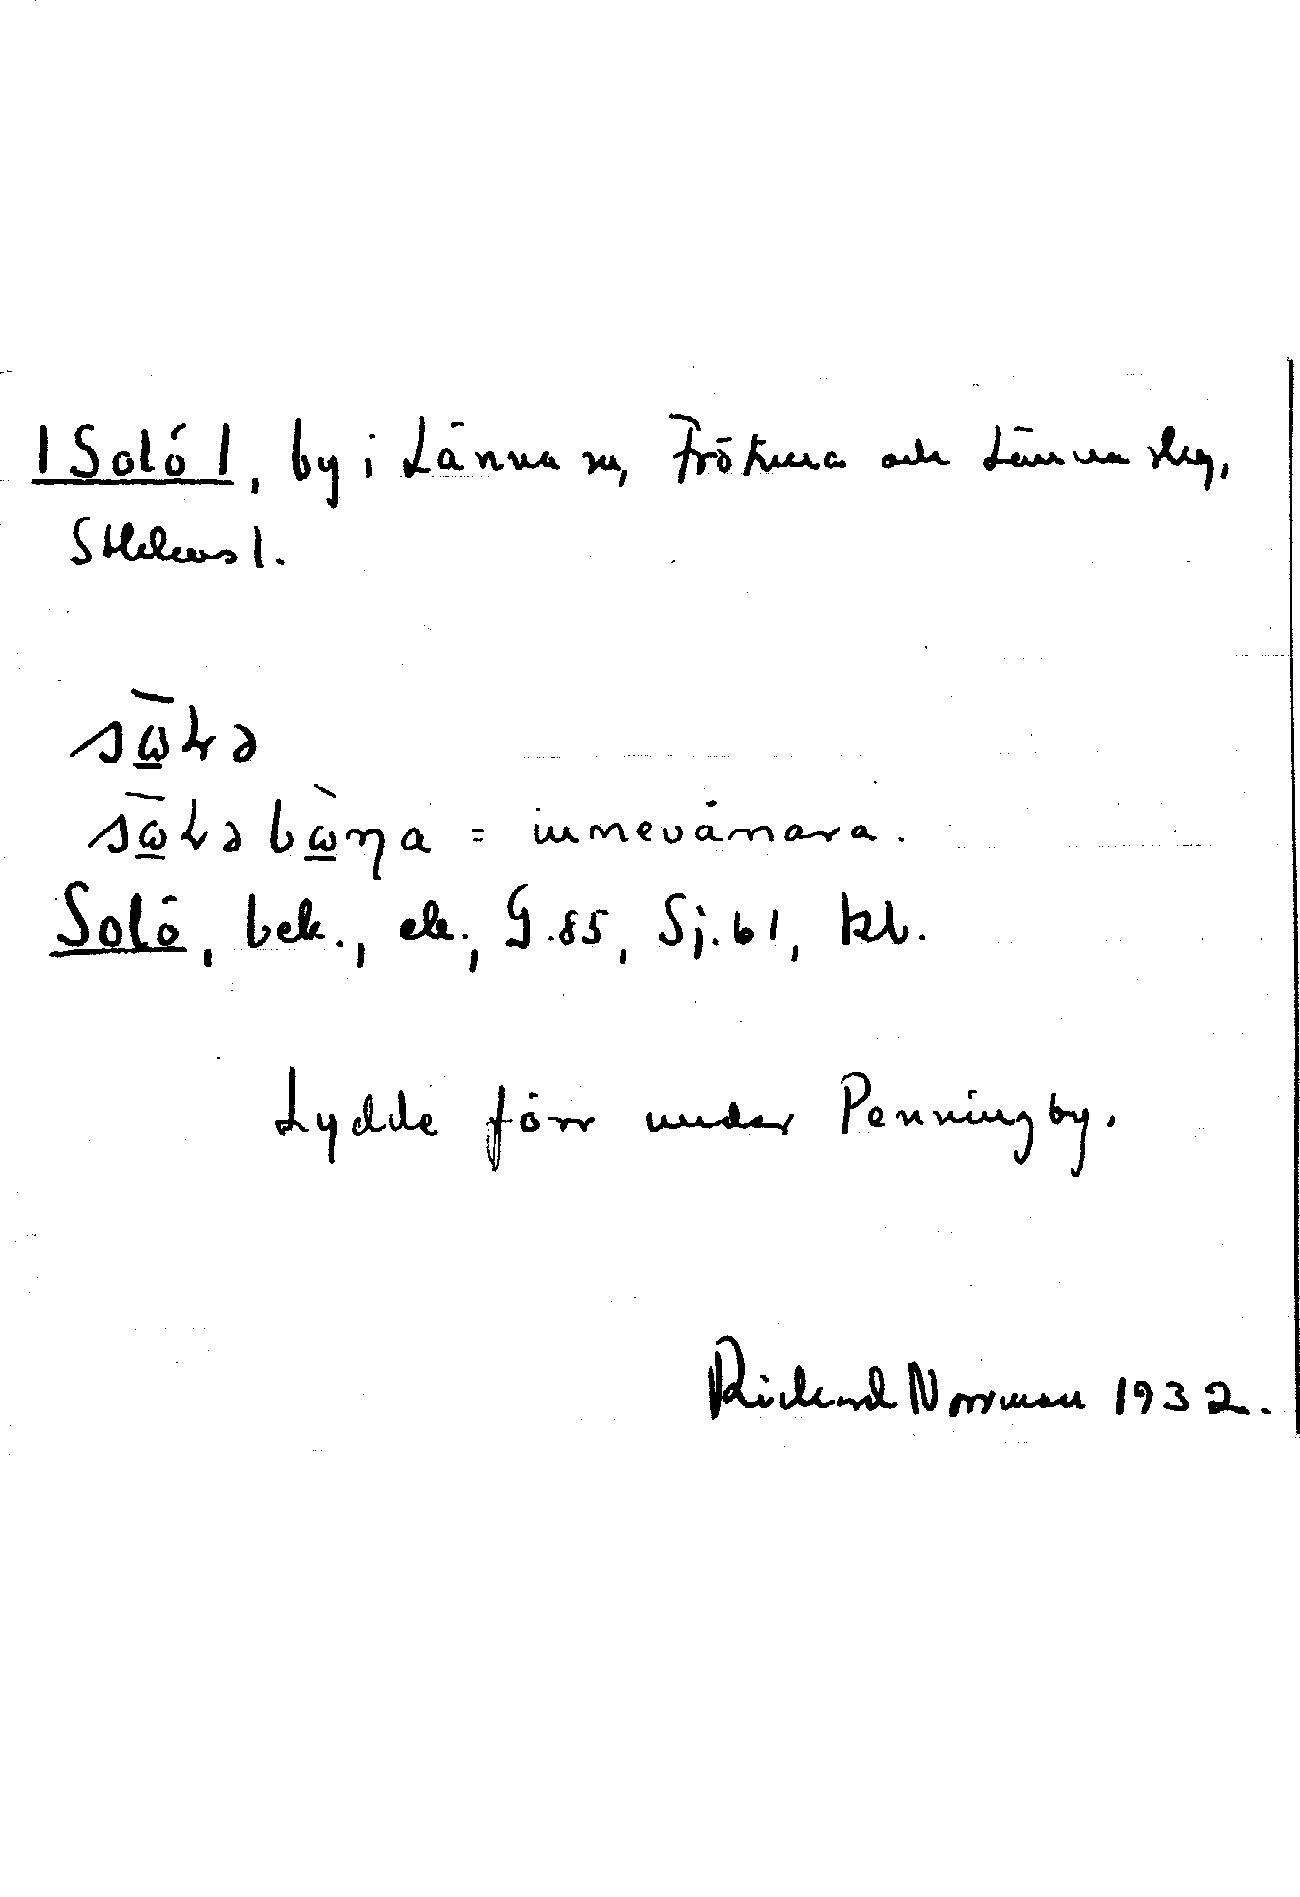 |Solö|, by i Länna sn, Frötuna och Länna skg,
Sthlms l.
sω̲̄ɬə
sω̲̄ɬəbὼ̲ŋa = innevånara.
Solö, bek., ek., G.85, Sj.61, kb.
Lydde förr under Penningby.
Rickard Norrman 1932.